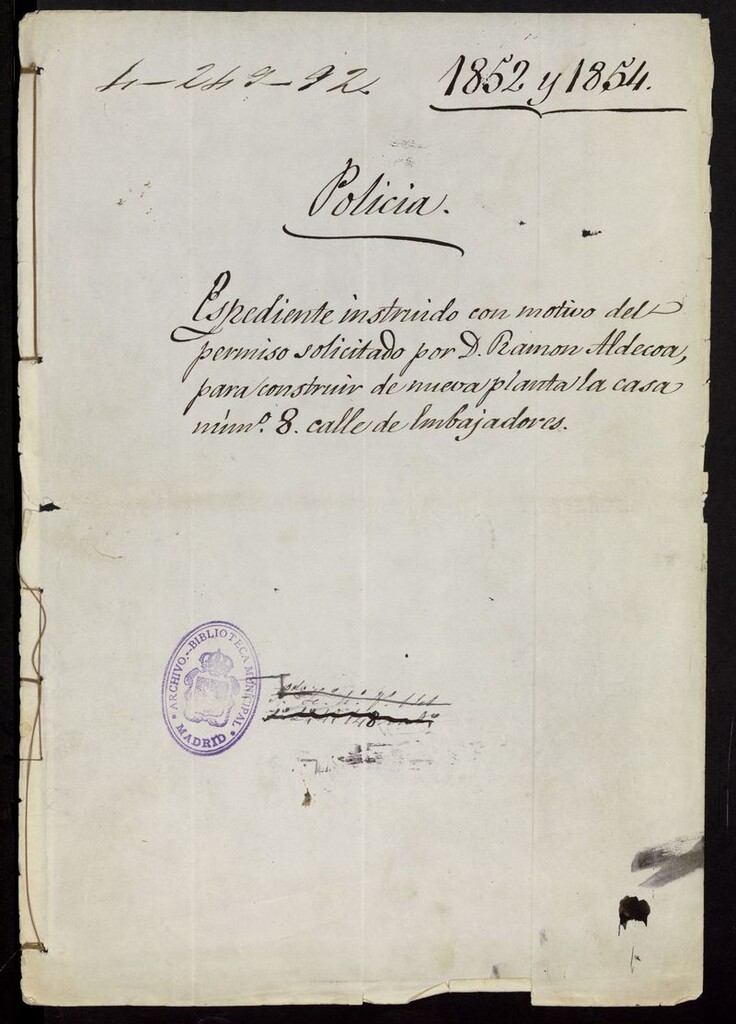 4-249-92
1852 y 1854.
Policia.
Espediente instruido con motivo del
permiso solicitado por D. Ramon Aldecoa,
para construir de nueva planta la casa
núm.º 8. calle de Embajadores.
ARCHIVO.-BIBLIOTECA MUNICIPAL
MADRID